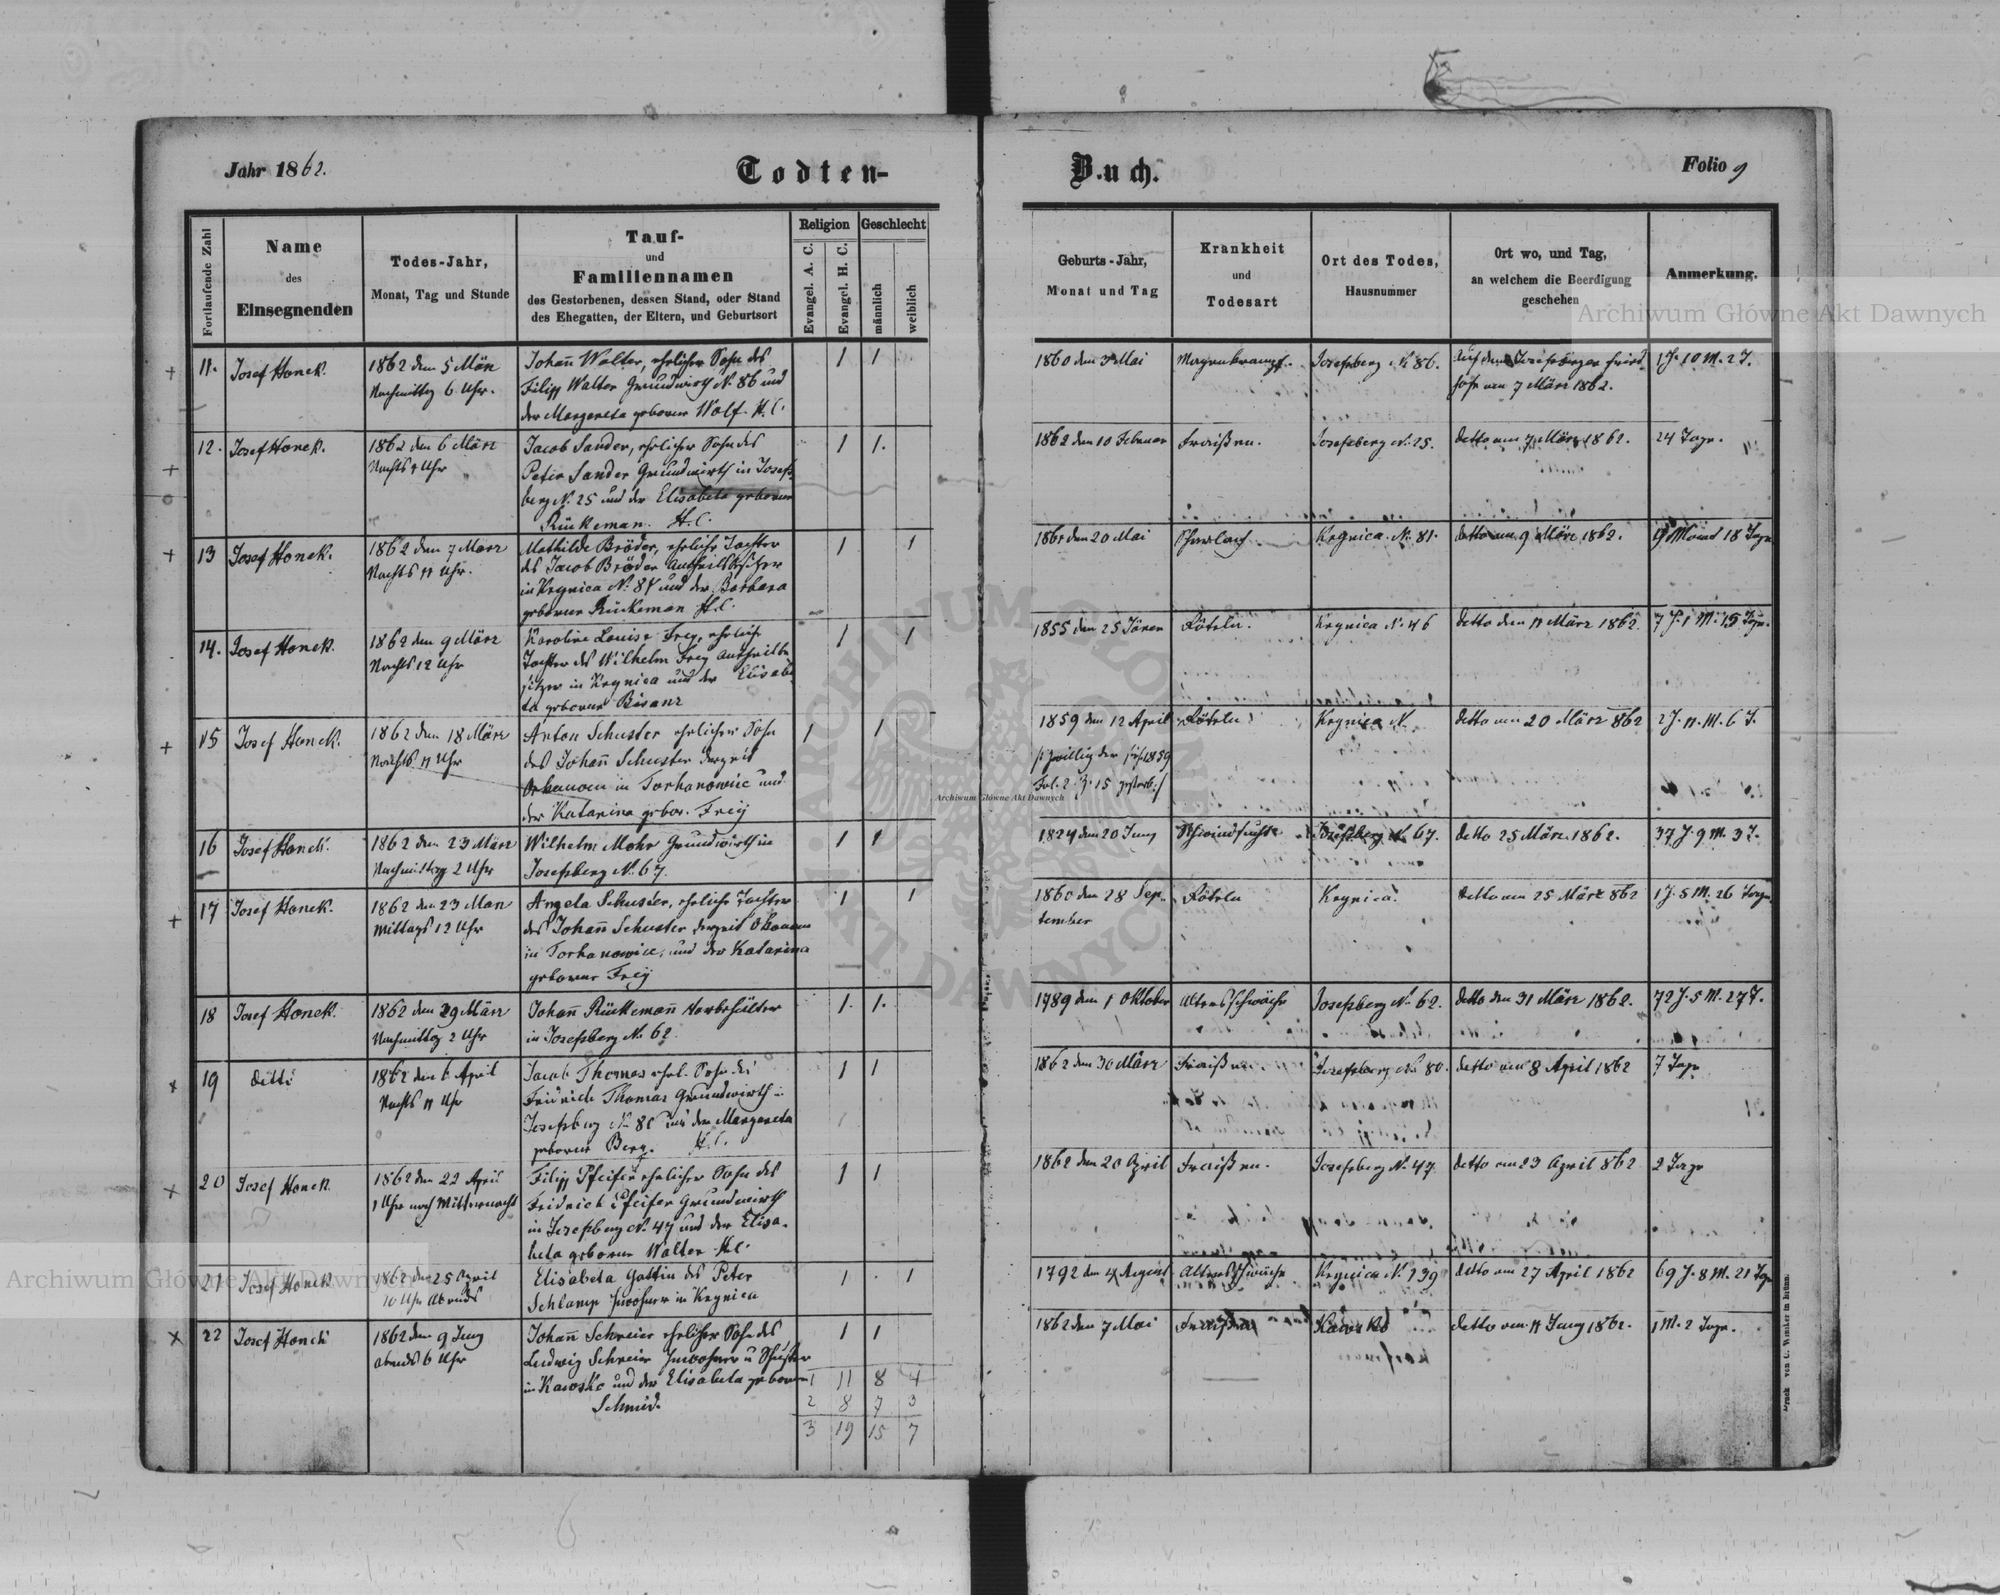 Jahr 1862.
Todten-
Buch.
Folio 9
Fortlaufende Zahl
Name
des
Einsegnenden
Todes-Jahr,
Monat, Tag und Stunde
Tauf-
und
Familiennamen
des Gestorbenen, dessen Stand, oder Stand
des Ehegatten, der Eltern, und Geburtsort
Religion
Evangel. A. C.
Evangel. H. C.
Geschlecht
männlich
weiblich
Geburts-Jahr,
Monat und Tag
Krankheit
und
Todesart
Ort des Todes,
Hausnummer
Ort wo, und Tag,
an welchem die Beerdigung
geschehen
Anmerkung.
11. Josef Honek.
1862 den 5 März
Nachmittag 6 Uhr.
Johañ Walter, ehelicher Sohn des
Filipp Walter Grundwirth N. 86 und
der Margareta geborene Wolf. H. C.
1 1
1860 den 3 Mai
Magenkrampf.
Josefsberg N. 86.
Auf dem Josefsberger Fried-
hofe am 7 März 1862.
1 J. 10 M. 2 T.
12. Josef Honek.
1862 den 6 März
Nachts 9 Uhr
Jacob Sander, ehelicher Sohn des
Peter Sander Grundwirth in Josefs-
berg N. 25 und der Elisabeta geborene
Rückeman. H. C.
1 1.
1862 den 10 Februar
Fraißen.
Josefsberg N. 25.
detto am 7 März 1862.
24 Tage.
13 Josef Honek.
1862 den 7 März
Nachts 11 Uhr.
Mathilde Bröder, eheliche Tochter
des Jacob Bröder Antheilbesitzer
in Krynica N. 81 und der Barbara
geborene Rückeman H. C.
1 1
1861 den 20 Mai
Scharlach.
Krynica. N. 81.
detto am 9 März 1862.
9 Monat 18 Tage
14. Josef Honek.
1862 den 9 März
Nachts 12 Uhr
Karoline Louise Frey, eheliche
Tochter des Wilhelm Frey Antheilbe
sitzer in Krynica und der Elisabe
ta geborene Bisanz
1 1
1855 den 25 Jäner
Röteln.
Krynica N. 46
detto den 11 März 1862.
7 J. 1 M. 15 Tage.
15 Josef Honek.
1862 den 18 März
Nachts 11 Uhr
Anton Schuster ehelicher Sohn
des Johañ Schuster derzeit
Oekonom in Torhanowice und
der Katarina gebor. Frey
1 1
1859 den 12 April
Fol. 2. Z. 15 gestorb:/
Röteln
Krynica N.
detto am 20 März 862
2 J. 11. M. 6 T.
16 Josef Honek.
1862 den 23 März
Nachmittag 2 Uhr
Wilhelm Mohr Grundwirth in
Josefsberg N. 67.
1 1
1824 den 20 Juny
Schwindsucht
Josefsberg N. 67.
detto 25 März 1862.
37 J. 9 M. 3 T.
17 Josef Honek.
1862 den 23 März
Mittags 12 Uhr
Angela Schuster, eheliche Tochter
des Johañ Schuster derzeit Ökonom
in Torhanowice, und der Katarina
geborene Frey
1 1
1860 den 28 Sep-
tember
Röteln
Krynica.
detto am 25 März 862
1 J. 5 M. 26 Tage
18 Josef Honek.
1862 den 29 März
Nachmittag 2 Uhr
Johañ Rückemañ Vorbehälter
in Josefsberg N. 62.
1. 1.
1789 den 1 Oktober
Altersschwäche
Josefsberg N. 62.
detto den 31 März 1862.
72 J. 5 M. 27 T.
19 detto
1862 den 6 April
Nachts 11 Uhr
Jacob Thomas ehel. Sohn des
Fridrich Thomas Grundwirth in
Josefsberg N. 80 und der Margareta
geborene Berg. H. C.
1 1
1862 den 30 März
Fraißen
Josefsberg N. 80.
detto am 8 April 1862
7 Tage
20 Josef Honek.
1862 den 22 April
1 Uhr nach Mitternacht
Filipp Pfeifer ehelicher Sohn des
Fridrich Pfeifer Grundwirth
in Josefsberg N. 47 und der Elisa-
beta geborene Walter H. C.
1 1
1862 den 20 April
Fraißen.
Josefsberg N. 47
detto am 23 April 862
2 Tage
21 Josef Honek
1862 den 25 April
10 Uhr Abends
Elisabeta Gattin des Peter
Schlamp Inwohner in Krynica
1 1
1792 den 4 August
Altersschwäche
Krynica N. 139
detto am 27 April 1862
69 J. 8 M. 21 Tage
22 Josef Honek
1862 den 9 Juny
Abends 6 Uhr
Johañ Schreier ehelicher Sohn des
Ludwig Schreier Inwohner u Schuster
in Kawsko und der Elisabeta geborene
Schmid.
1 1
1862 den 7 Mai
Fraißen
Kawsko
detto am 11 Juny 1862.
1 M. 2 Tage.
1 11 8 4
2 8 7 3
3 19 15 7
Druck von C. Winiker in Brünn.
Archiwum Główne Akt Dawnych
Archiwum Główne Akt Dawnych
Archiwum Główne Akt Dawnych
ARCHIWUM GŁÓWNE AKT DAWNYCH